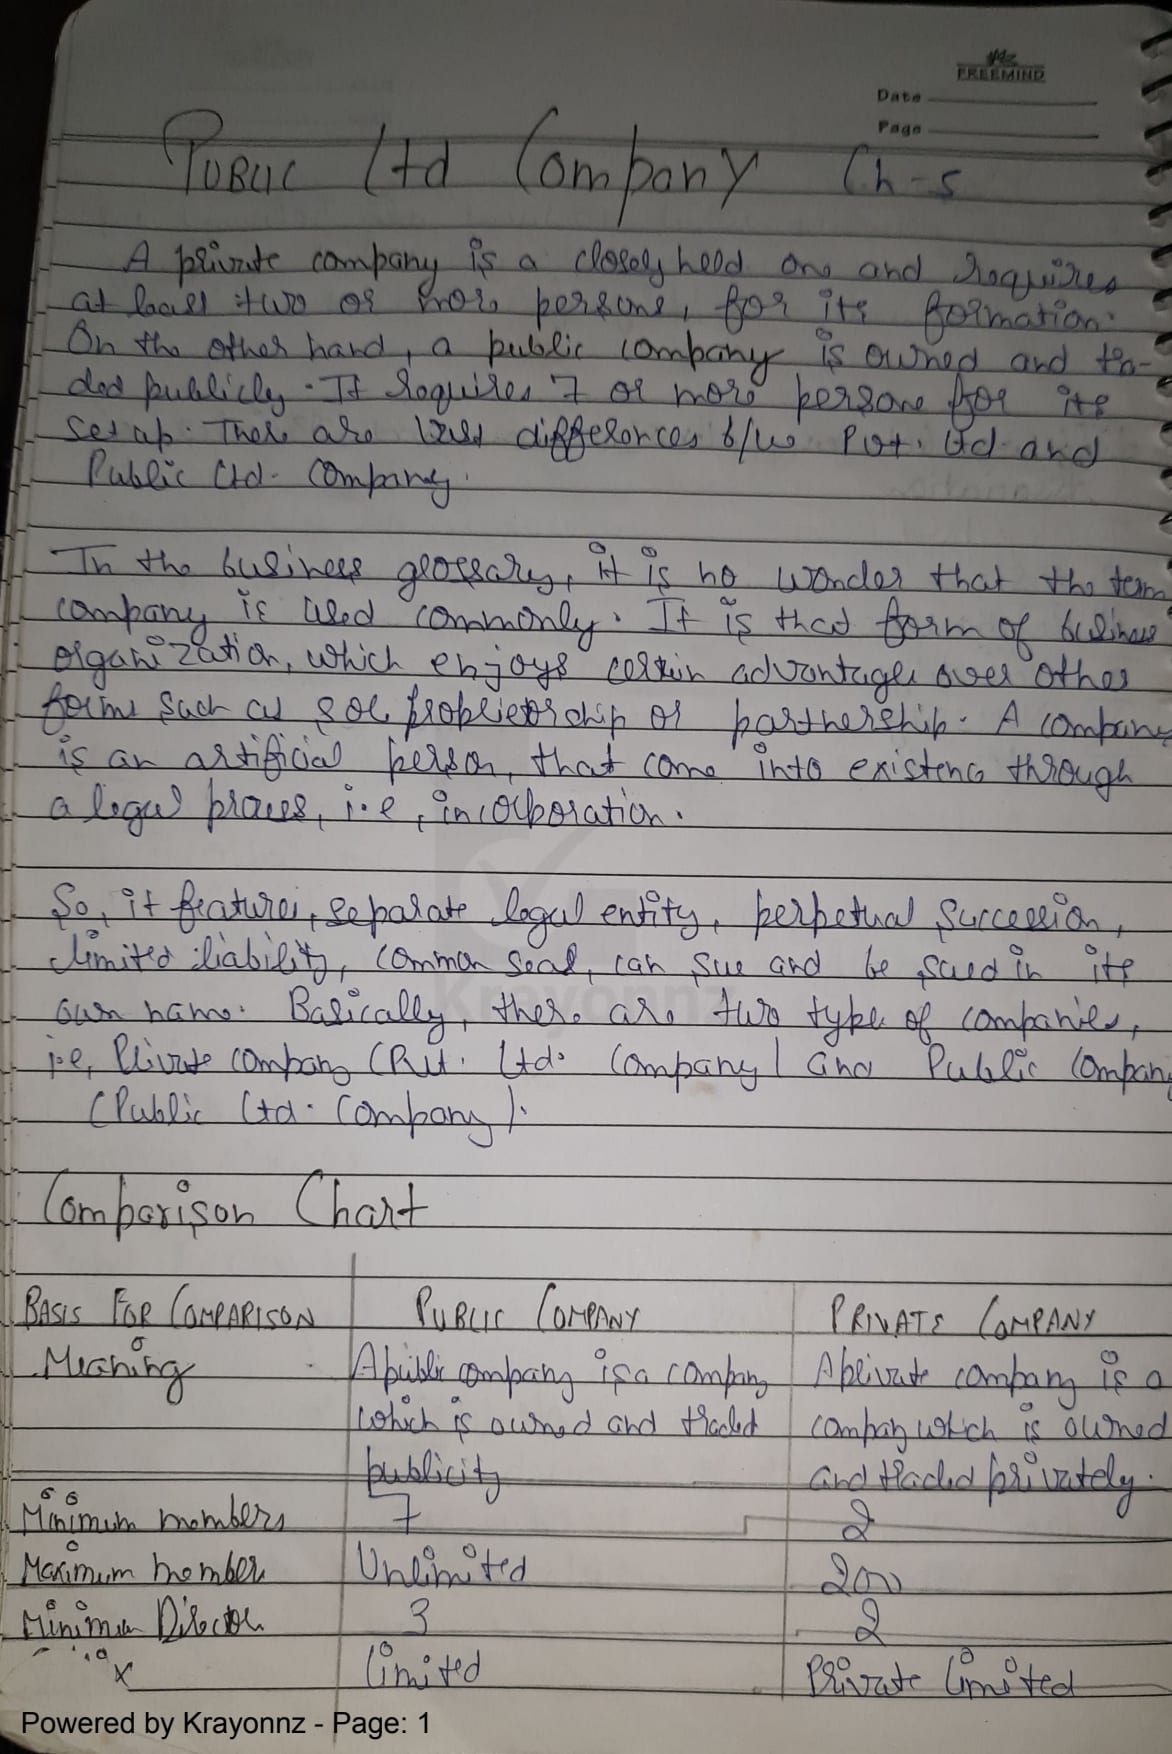 FREEMIND
Date
Page
PUBLIC Ltd Company Ch-5
A private company is a closely held one and requires
at least two or more persons, for its formation.
On the other hand, a public company is owned and tra-
ded publicly. It requires 7 or more persons for its
set up. There are differences b/w Pvt. Ltd and
Public Ltd. Company.
In the business glossary, it is no wonder that the term
company is used commonly. It is that form of business
organization, which enjoys certain advantages over other
forms such as sole proprietorship or partnership. A company
is an artificial person, that come into existence through
a legal process, i.e, incorporation.
So, it features, separate legal entity, perpetual succession,
limited liability, common seal, can sue and be sued in its
own name. Basically, there are two type of companies,
i.e, Private company (Pvt. Ltd. Company) and Public Company
(Public Ltd. Company).
Comparison Chart
BASIS FOR COMPARISON PUBLIC COMPANY PRIVATE COMPANY
Meaning A public company is a company A private company is a
which is owned and traded company which is owned
publicity and traded privately.
Minimum members 7 2
Maximum member Unlimited 200
Minimum Director 3 2
Limited Private Limited
Krayonnz
Powered by Krayonnz - Page: 1